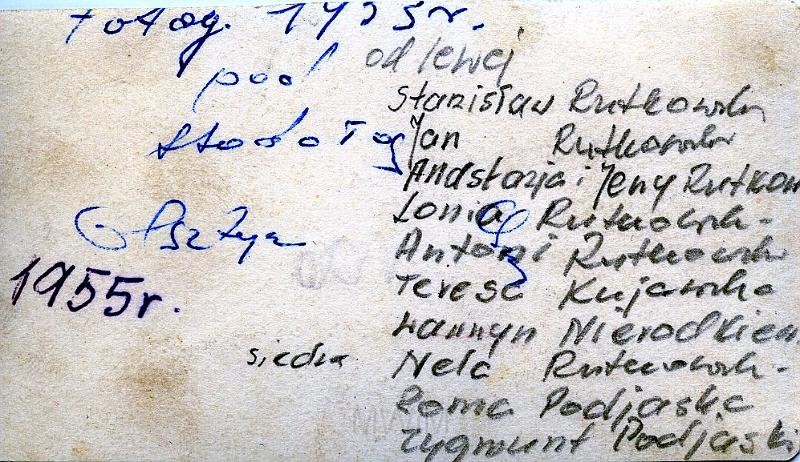 Fotog. 1955r.
pod
stodołą
Olsztyn
1955r.
od lewej
Stanisław Rutkowski
Jan Rutkowski
Anastazja i Jerzy Rutkow
Lonia Rutkowsk-
Antoni Rutkowski
Teresa Kujawska
siedzą Nela Rutkowsk-
Roma Podjaska
Zygmunt Podjaski